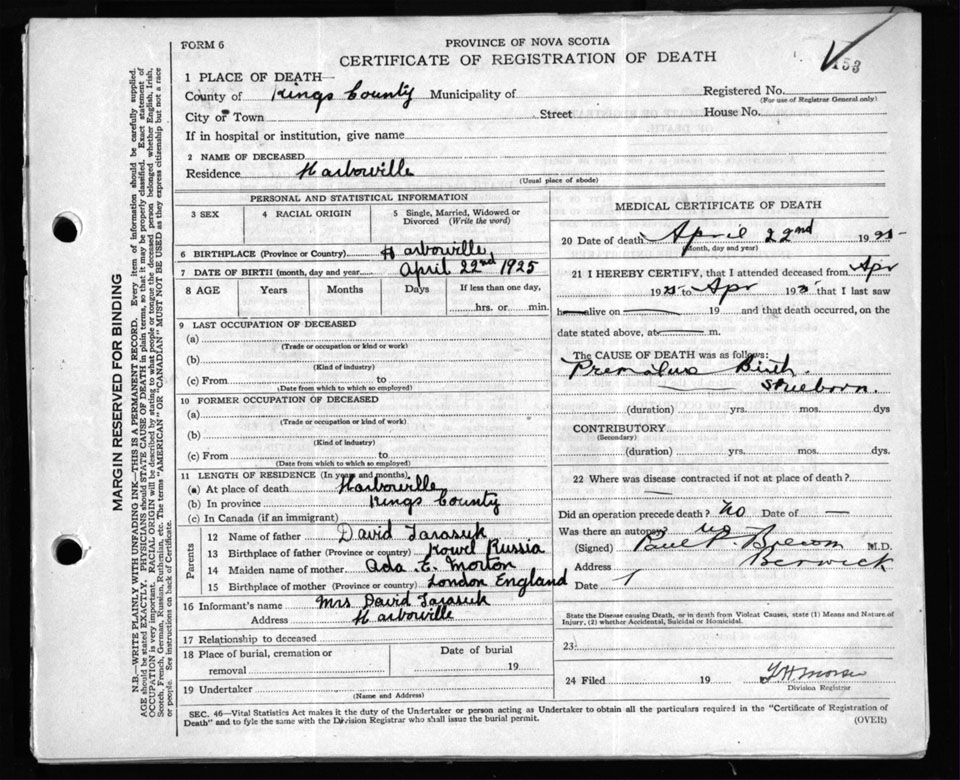 FORM 6
PROVINCE OF NOVA SCOTIA
CERTIFICATE OF REGISTRATION OF DEATH
53
MARGIN RESERVED FOR BINDING
N.B.—WRITE PLAINLY WITH UNFADING INK—THIS IS A PERMANENT RECORD. Every item of information should be carefully supplied.
AGE should be stated EXACTLY. PHYSICIANS should STATE CAUSE OF DEATH in plain terms, so that it may be properly classified. Exact statement of
OCCUPATION is very important. RACIAL ORIGIN will be described by stating to what people or tongue the deceased person belonged whether English, Irish,
Scotch, French, German, Russian, Ruthenian, etc. The terms "AMERICAN" OR "CANADIAN" MUST NOT BE USED as they express citizenship but not a race
or people. See instructions on back of Certificate.
1 PLACE OF DEATH—
County of Kings County Municipality of
Registered No.
(For use of Registrar General only)
City or Town Street House No.
If in hospital or institution, give name
2 NAME OF DECEASED
Residence Harbourville
(Usual place of abode)
PERSONAL AND STATISTICAL INFORMATION
3 SEX 4 RACIAL ORIGIN 5 Single, Married, Widowed or
Divorced (Write the word)
6 BIRTHPLACE (Province or Country) Harbourville
7 DATE OF BIRTH (month, day and year) April 22nd 1925
8 AGE Years Months Days If less than one day,
hrs. or min.
9 LAST OCCUPATION OF DECEASED
(a)
(Trade or occupation or kind or work)
(b)
(Kind of industry)
(c) From to
(Date from which to which so employed)
10 FORMER OCCUPATION OF DECEASED
(a)
(Trade or occupation or kind of work)
(b)
(Kind of industry)
(c) From to
(Date from which to which so employed)
11 LENGTH OF RESIDENCE (In years and months)
(a) At place of death Harbourville
(b) In province Kings County
(c) In Canada (if an immigrant)
Parents
12 Name of father David Tarasuk
13 Birthplace of father (Province or country) Kowel Russia
14 Maiden name of mother Ada E. Morton
15 Birthplace of mother (Province or country) London England
16 Informant's name Mrs David Tarasuk
Address Harbourville
17 Relationship to deceased
18 Place of burial, cremation or
removal
Date of burial
19
19 Undertaker
(Name and Address)
MEDICAL CERTIFICATE OF DEATH
20 Date of death April 22nd 1925
(Month, day and year)
21 I HEREBY CERTIFY, that I attended deceased from Apr
1925 to Apr 192 that I last saw
h alive on 19 and that death occurred, on the
date stated above, at m.
The CAUSE OF DEATH was as follows:
Premature Birth.
Stillborn.
(duration) yrs. mos. dys
CONTRIBUTORY
(Secondary)
(duration) yrs. mos. dys.
22 Where was disease contracted if not at place of death?
Did an operation precede death? No Date of —
Was there an autopsy? no
(Signed) M.D.
Address Berwick
Date
State the Disease causing Death, or in death from Violent Causes, state (1) Means and Nature of
Injury, (2) whether Accidental, Suicidal or Homicidal.
23
24 Filed 19
Division Registrar
SEC. 46—Vital Statistics Act makes it the duty of the Undertaker or person acting as Undertaker to obtain all the particulars required in the "Certificate of Registration of
Death" and to fyle the same with the Division Registrar who shall issue the burial permit.
(OVER)